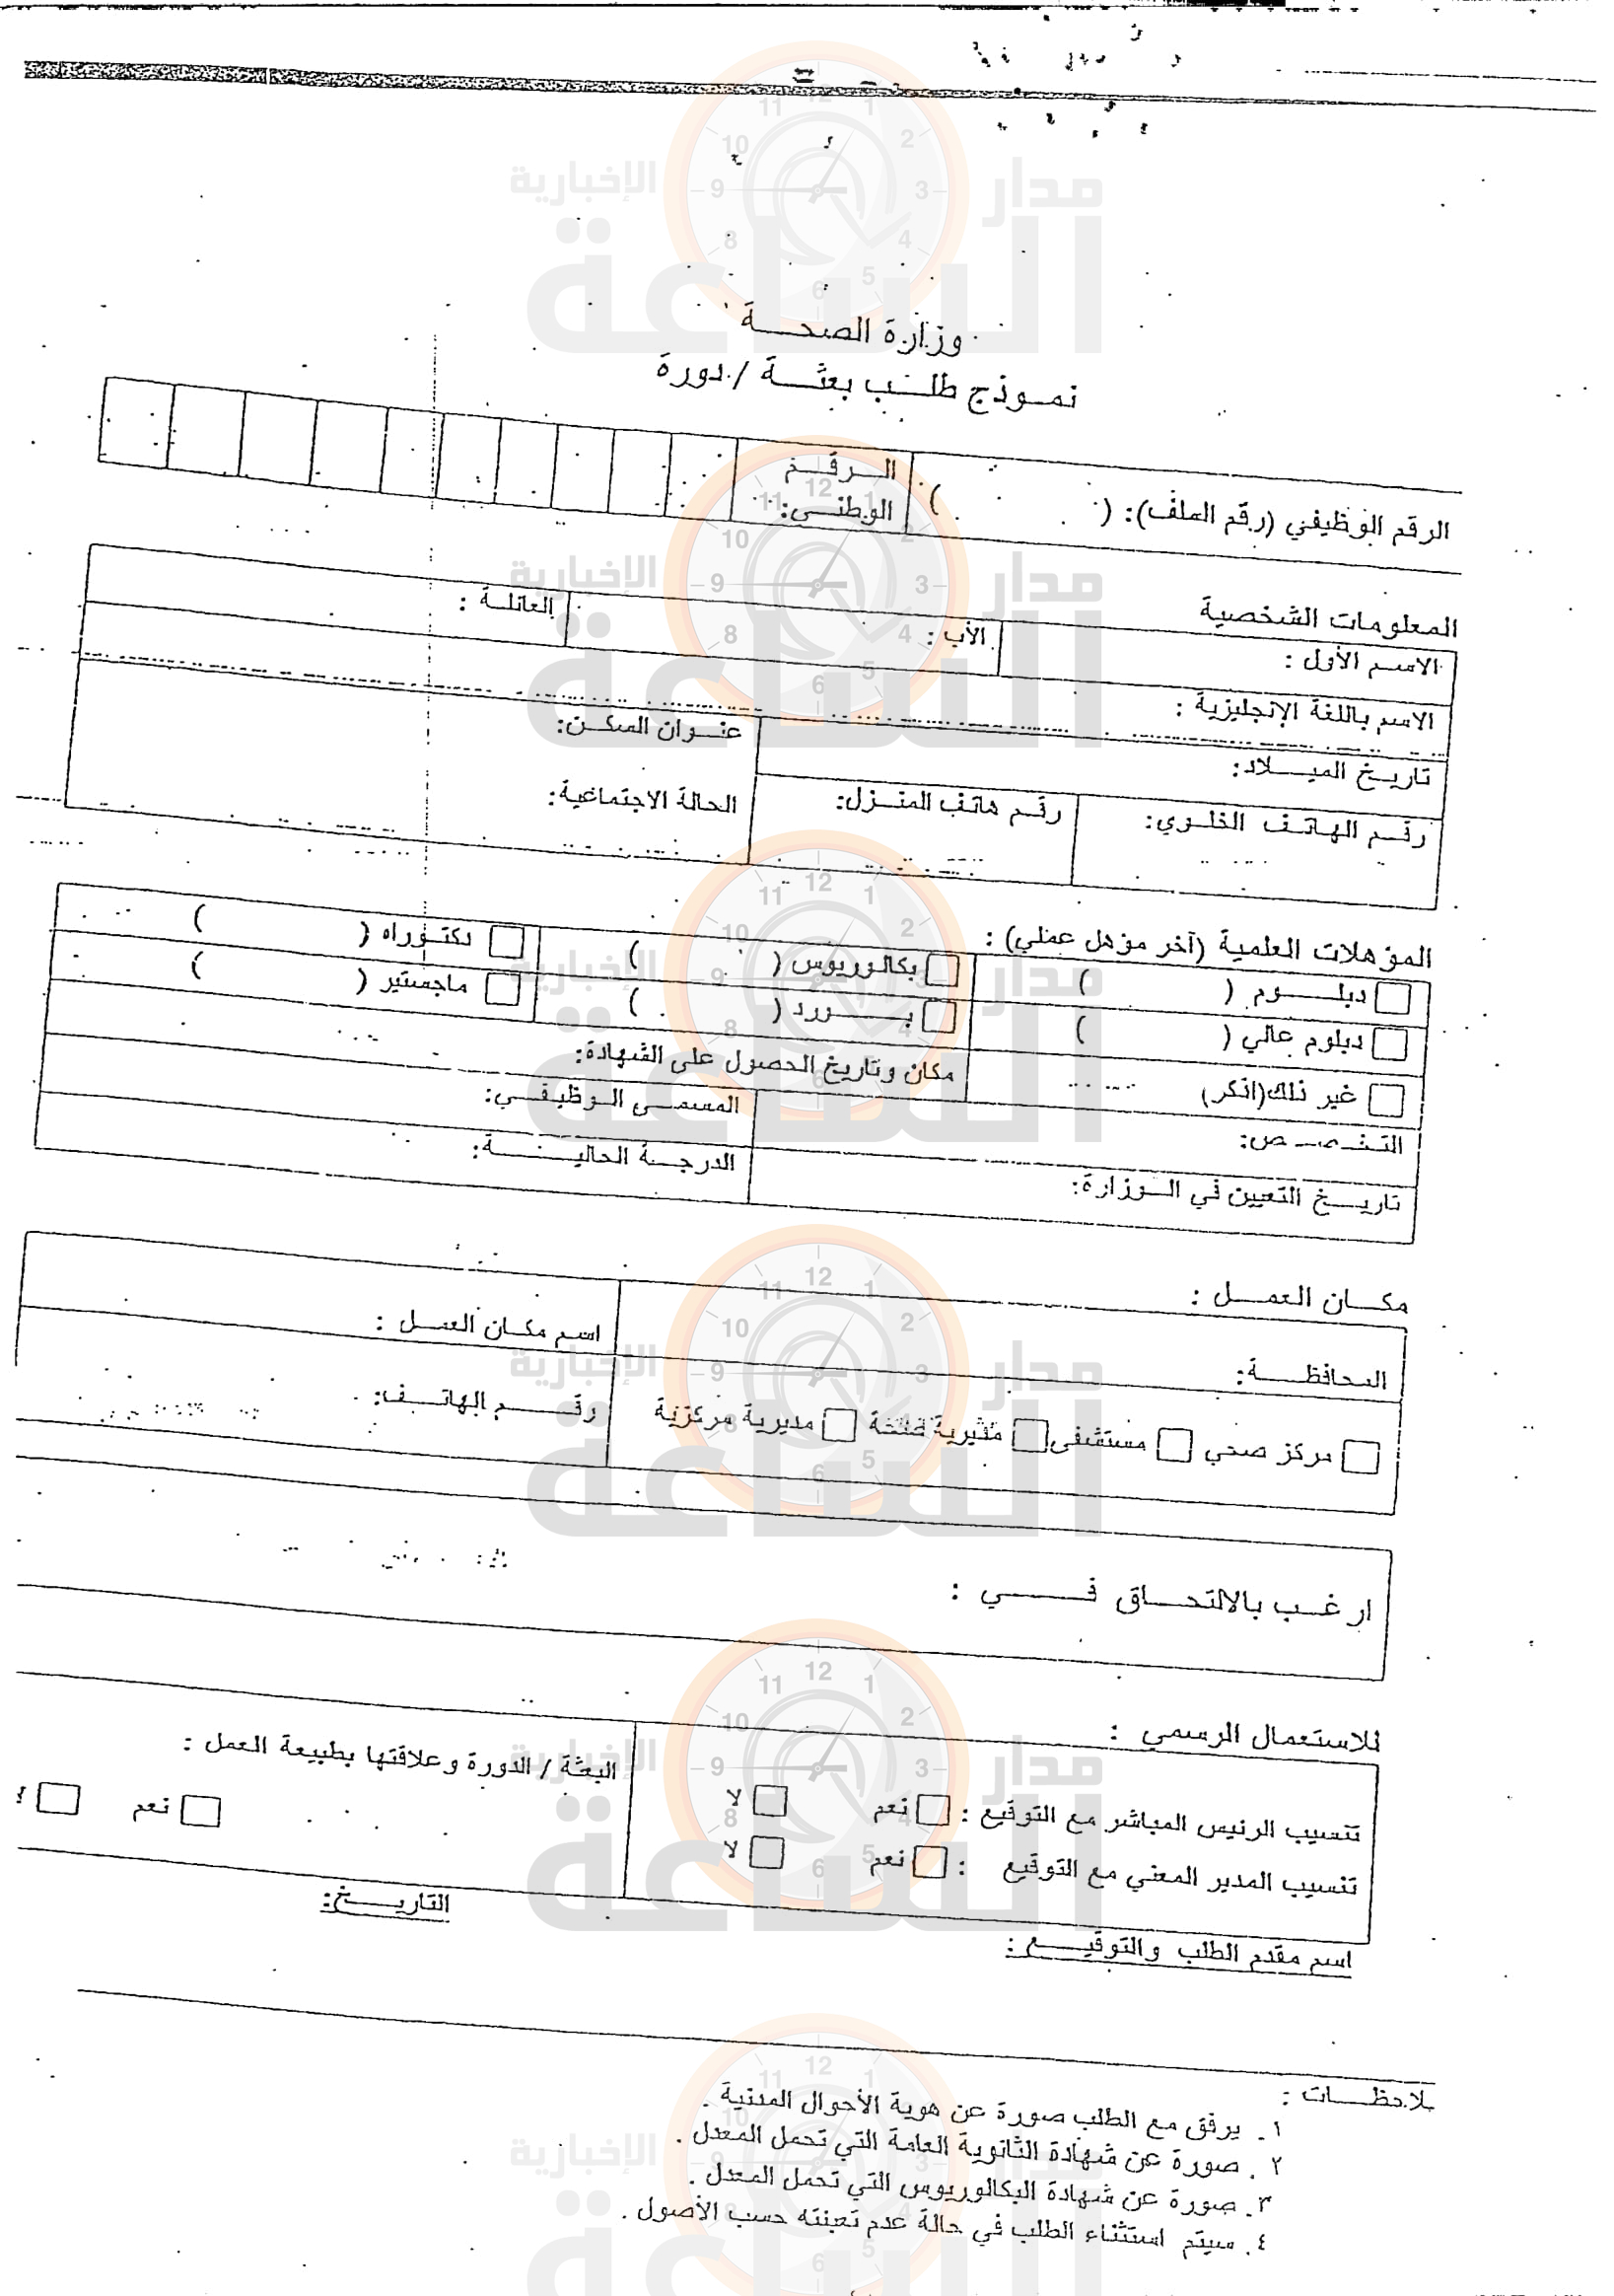 وزارة الصحة
نموذج طلب بعثة / دورة
الرقم الوظيفي (رقم الملف): ( ) الرقم الوطني:
المعلومات الشخصية
الاسم الأول : الأب : العائلة :
الاسم باللغة الإنجليزية :
تاريخ الميلاد: عنوان السكن:
رقم الهاتف الخلوي: رقم هاتف المنزل: الحالة الاجتماعية:
المؤهلات العلمية (آخر مؤهل عملي) :
دبلوم ( ) بكالوريوس ( ) دكتوراه ( )
دبلوم عالي ( ) بورد ( ) ماجستير ( )
غير ذلك(اذكر) مكان وتاريخ الحصول على الشهادة:
التخصص: المسمى الوظيفي:
تاريخ التعيين في الوزارة: الدرجة الحالية:
مكان العمل :
المحافظة: اسم مكان العمل :
مركز صحي مستشفى مديرية صحة مديرية مركزية رقم الهاتف:
ارغب بالالتحاق في :
للاستعمال الرسمي :
تنسيب الرئيس المباشر مع التوقيع : نعم لا البعثة / الدورة وعلاقتها بطبيعة العمل :
تنسيب المدير المعني مع التوقيع : نعم لا نعم
اسم مقدم الطلب والتوقيع : التاريخ:
ملاحظات :
١. يرفق مع الطلب صورة عن هوية الأحوال المدنية .
٢. صورة عن شهادة الثانوية العامة التي تحمل المعدل .
٣. صورة عن شهادة البكالوريوس التي تحمل المعدل .
٤. سيتم استثناء الطلب في حالة عدم تعبئته حسب الأصول .
مدار الساعة الإخبارية